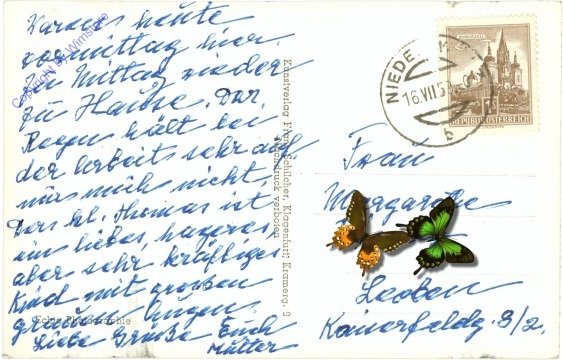 Waren heute
vormittag hier.
Zu Mittag wieder
zu Hause. Der
Regen hält bei
der Arbeit sehr auf,
mich nicht.
Der kl. Thomas ist
ein liebes, mageres
aber sehr kräftiges
Kind mit großen
grauen Augen.
Liebe Grüße Euch
Mutter
Copyright by Wimsbote
Kunstverlag Franz Schilcher, Klagenfurt, Kramerg. 3
Nachdruck verboten
NIEDE
16.VII.5
b
REPUBLIK ÖSTERREICH
Frau
Margarethe
Leoben
Kaiserfeldg. 3/2.